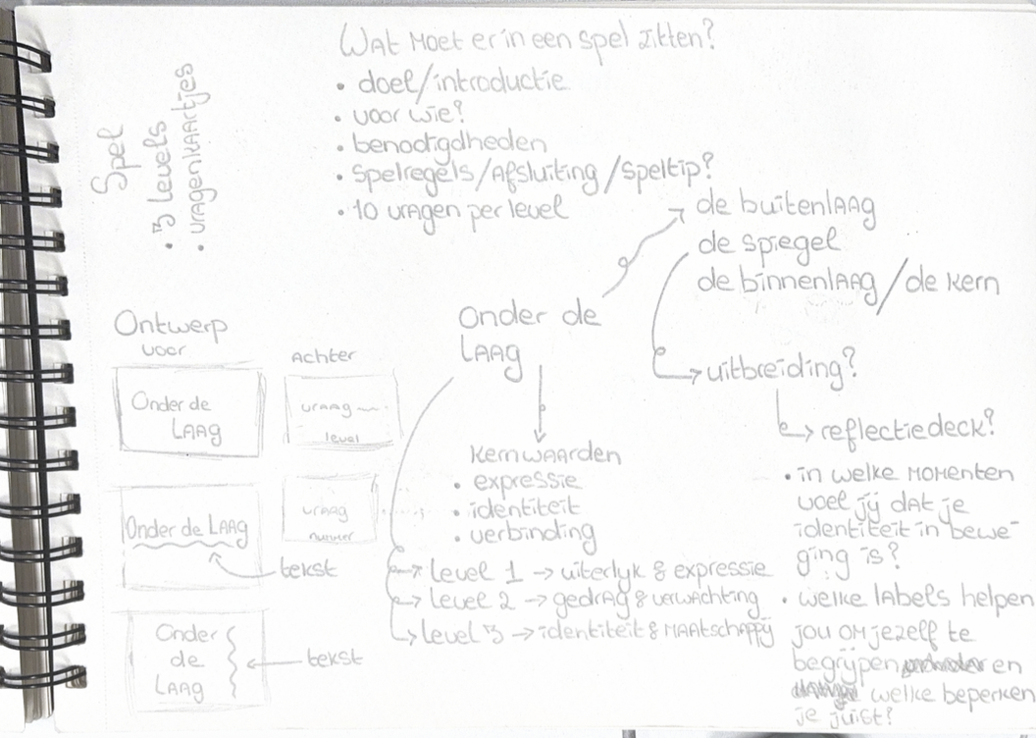 Wat moet er in een spel zitten?
• doel/introductie
• voor wie?
• benodigdheden
• Spelregels/Afsluiting/speltip?
• 10 vragen per level
Spel
• 3 levels
• vragenkaartjes
de buitenlaag
de spiegel
de binnenlaag/de kern
onder de
laag
uitbreiding?
reflectiedeck?
• in welke momenten
voel jij dat je
identiteit in bewe-
ging is?
• welke labels helpen
jou om jezelf te
begrijpen en
welke beperken
je juist?
kernwaarden
• expressie
• identiteit
• verbinding
level 1 → uiterlijk & expressie
level 2 → gedrag & verwachting
level 3 → identiteit & maatschappij
Ontwerp
voor
Achter
Onder de
laag
vraag
level
Onder de laag
vraag
nummer
tekst
Onder
de
laag
tekst